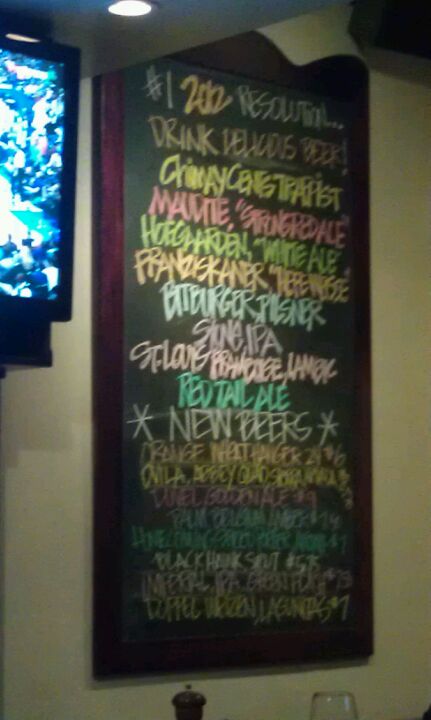 #1 2012 RESOLUTION...
DRINK DELICIOUS BEER!
CHIMAY CENTS TRAPPIST
MAUDITE, "STRONG RED ALE"
HOEGAARDEN, "WHITE ALE"
FRANZISKANER "HEFEWEISSE"
BITBURGER PILSNER
STONE, IPA
ST. LOUIS FRAMBOISE, LAMBIC
RED TAIL ALE
* NEW BEERS *
ORANGE WHEAT HANGAR 24 $6
OVILA, ABBEY QUAD
DUVEL GOLDEN ALE $9
PALM BELGIAN AMBER $7
BLACK HAWK STOUT
IMPERIAL IPA GREEN FLASH
DOPPEL WEIZEN, LAGUNITAS $7